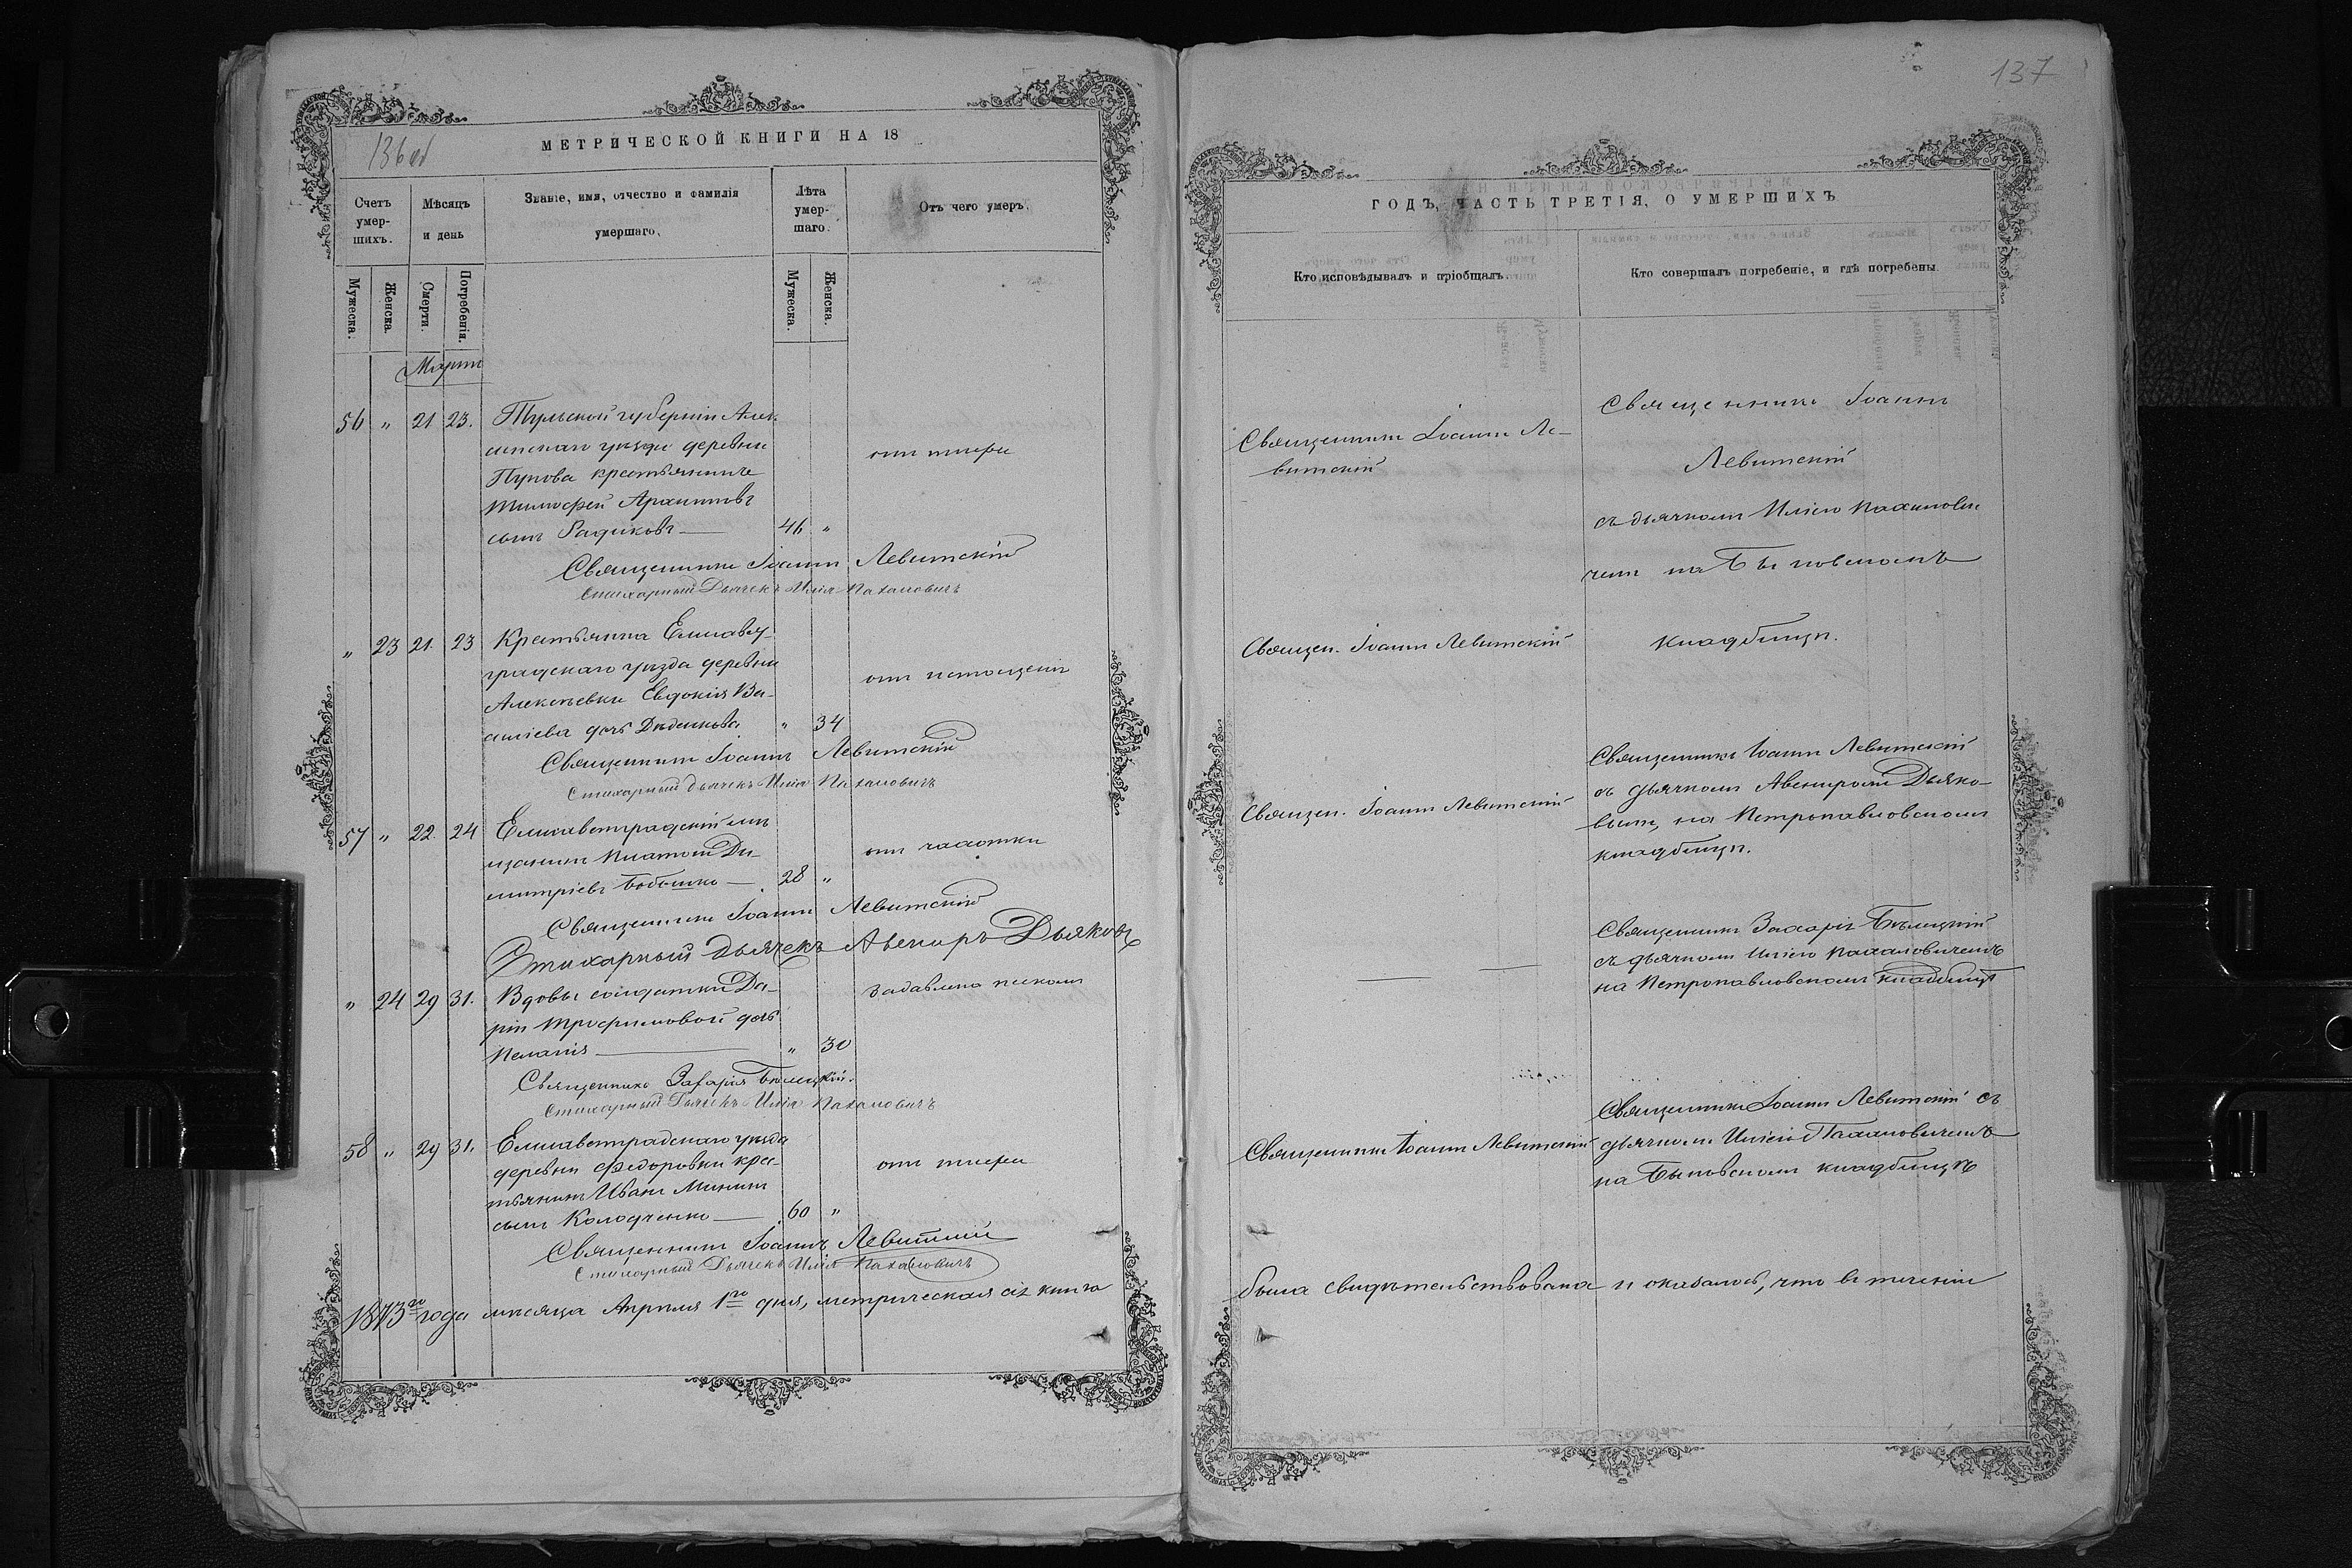 136об
МЕТРИЧЕСКОЙ КНИГИ НА 18
Счетъ умер-шихъ.
Мѣсяцъ и день
Званіе, имя, отчество и фамилія умершаго.
Лѣта умер-шаго.
Отъ чего умеръ.
Мужеска.
Женска.
Смерти.
Погребенія.
Мужеска.
Женска.
Мартъ
56 " 21 23. Тульской губерніи Алек-
синскаго уѣзда деревни
Пупова крестьянинъ
Тимофей Архиповъ
сынъ Радиковъ — 46 "
отъ тифа
Священникъ Іоаннъ Левитскій
Стихарный Дьячекъ Илія Пахановичъ
" 23 21. 23 Крестьянка Елисавет-
градскаго уѣзда деревни
Алексѣевки Евдокія Ва-
силіева дочь " 34
отъ истощенія
Священникъ Іоаннъ Левитскій
Стихарный дьячекъ Илія Пахановичъ
57 " 22. 24 Елисаветградскій мѣ-
щанинъ Платонъ Ди-
митріевъ Бобошко — 28 "
отъ чахотки
Священникъ Іоаннъ Левитскій
Стихарный Дьячекъ Авениръ Дьяковъ
" 24 29 31. Вдовы солдатки Да-
ріи Трофимовой дочь
Пелагія — " 30
задавлена пескомъ
Священникъ Захарія Бѣлецкій.
Стихарный Дьячекъ Илія Пахановичъ
58 " 29 31. Елисаветградскаго уѣзда
деревни Федоровки кре-
стьянинъ Иванъ Мининъ
сынъ Колодченко — 60 "
отъ тифа
Священникъ Іоаннъ Левитскій
Стихарный Дьячекъ Илія Пахановичъ
1873го года мѣсяца Апрѣля 1го дня, метрическая сія книга
137
ГОДЪ, ЧАСТЬ ТРЕТІЯ, О УМЕРШИХЪ
Кто исповѣдывалъ и пріобщалъ.
Кто совершалъ погребеніе, и гдѣ погребены.
Священникъ Іоаннъ Ле-
витскій
Священникъ Іоаннъ
Левитскій
съ дьячкомъ Иліею Паханови-
чемъ на Быковскомъ
кладбищѣ.
Священ. Іоаннъ Левитскій
Священ. Іоаннъ Левитскій
Священникъ Іоаннъ Левитскій
съ дьячкомъ Авениромъ Дьяко-
вымъ, на Петропавловскомъ
кладбищѣ.
— —
Священникъ Захарія Бѣлецкій
съ дьячкомъ Иліею Пахановичемъ
на Петропавловскомъ кладбищѣ
Священникъ Іоаннъ Левитскій
Священникъ Іоаннъ Левитскій съ
дьячкомъ Иліею Пахановичемъ
на Быковскомъ кладбищѣ
была свидѣтельствована и оказалось, что въ теченіи